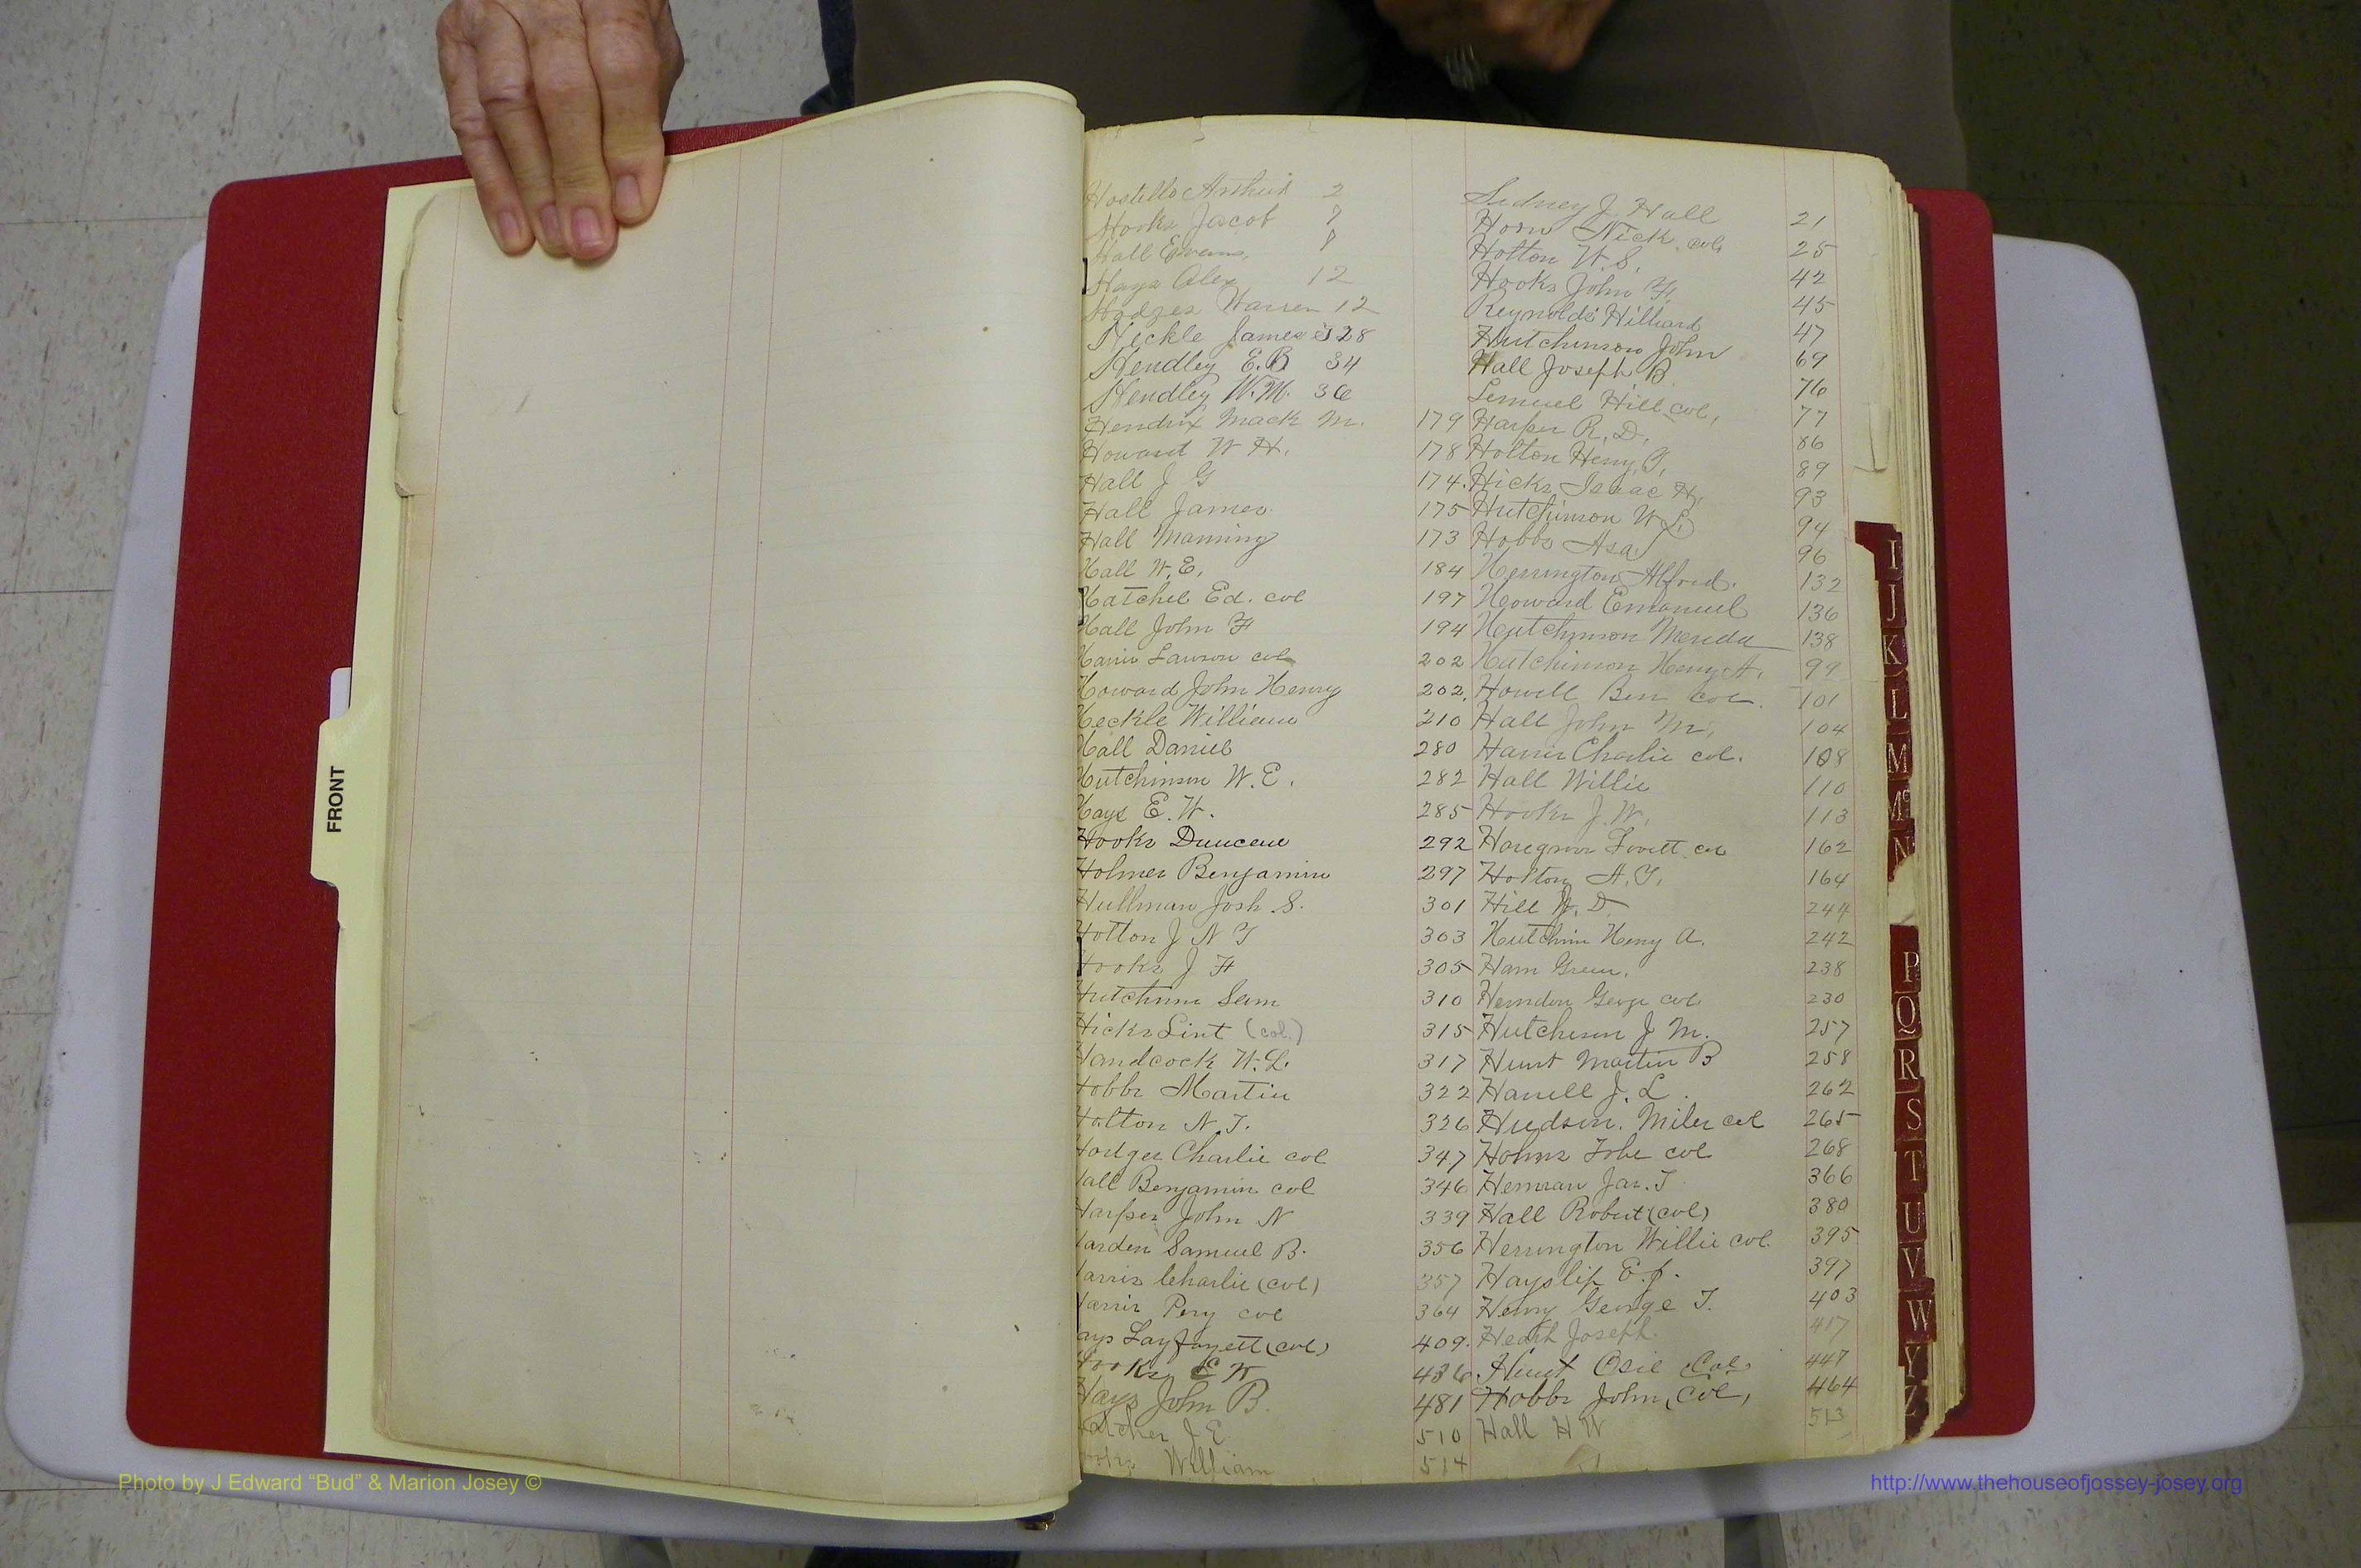 Hostillo Arthur 2
Hooks Jacob 7
Hall Evans, 8
Hays Alex 12
Hodges Warren 12
Heckle James S 28
Hendley E.B 34
Hendley W.M. 36
Hendrix Mack M. 179
Howard W H. 178
Hall J G 174.
Hall James 175
Hall Manning 173
Hall W.E, 184
Hatchel Ed. col 197
Hall John F 194
Harris Lawson col 202
Howard John Henry 202.
Heckle William 210
Hall Daniel 280
Hutchinson W.E. 282
Hays E.W. 285
Hooks Duncan 292
Holmes Benjamin 297
Hullman Josh S. 301
Holton J N T 303
Hooks J F 305
Hutchins Sam 310
Hicks Lint (col.) 315
Handcock W.L. 317
Hobbs Martin 322
Holton N.T. 326
Hodges Charlie col 347
Hall Benjamin col 346
Harper John N 339
Harden Samuel B. 356
Harris Charlie (col) 357
Harris Pery col 364
Hays Layfayett (col) 409.
Hooks E W 436
Hays John B. 481
Hatcher J E 510
Hooks William 514
Sidney J. Hall 21
Horn Nick col 25
Holton W.S. 42
Hooks John F. 45
Reynolds Hilliard 47
Hutchinson John 69
Hall Joseph B. 76
Lemuel Hill col, 77
Harper R.D. 86
Holton Henry T, 89
Hicks Isaac H. 93
Hutchinson W L 94
Hobbs Asa 96
Herrington Alford. 132
Howard Emanuel 136
Hutchinson Merida 138
Hutchinson Henry A. 99
Howell Ben col. 101
Hall John M, 104
Harris Charlie col. 108
Hall Willie 110
Hooks J.W, 113
Hargrove Lovett col 162
Holton A.T, 164
Hill W.D 244
Hutchins Henry A. 242
Ham Green. 238
Herndon George col 230
Hutcheson J M. 257
Hunt Martin B 258
Harrell J.L. 262
Hudson. Miles col 265
Holms Tobe col 268
Herman Jas. T 366
Hall Robert (col) 380
Herrington Willie col. 395
Hayslip E.J. 397
Henry George T. 403
Heath Joseph. 417
Hunt Osie Col 447
Hobbs John, Col, 464
Hall H W 513
I
J
K
L
M
Mc
N
P
Q
R
S
T
U
V
W
Y
Z
FRONT
Photo by J Edward “Bud” & Marion Josey ©
http://www.thehouseofjossey-josey.org